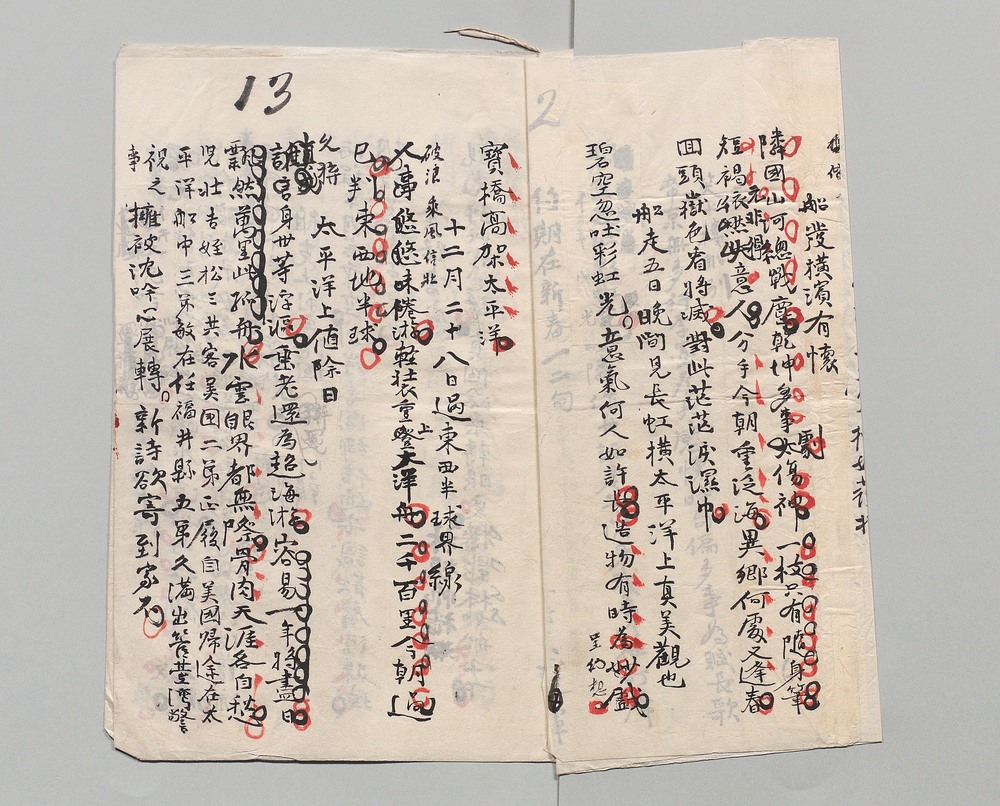 13
2
船發橫濱有懷
隣國山河總戰塵乾坤多事太傷神一枝只有隨身筆
短褐依然失意人分手今朝重泛海異鄉何處又逢春
元非得
回頭嶽色看將滅對此茫茫淚濕巾
船走五日晚間見長虹橫太平洋上真美觀也
碧空忽吐彩虹光意氣何人如許長造物有時為妙戲
寶橋高架太平洋
十二月二十八日過東西半球界線
破浪乘風信壯
人壽悠悠味倦游輕裝上大洋舟二千百里今朝過
已判東西地半球
太平洋上值除日
久將
身世等浮漚垂老還為超海游容易一年將盡日
飄然萬里此孤舟水雲眼界都無際骨肉天涯各自愁
兒壯吉姪松三共客美國二弟正履自美國歸途在太
平洋船中三弟敏在任福井縣五弟久滿出管臺灣警
視之
事
擁被沈吟心展轉新詩欲寄到家不